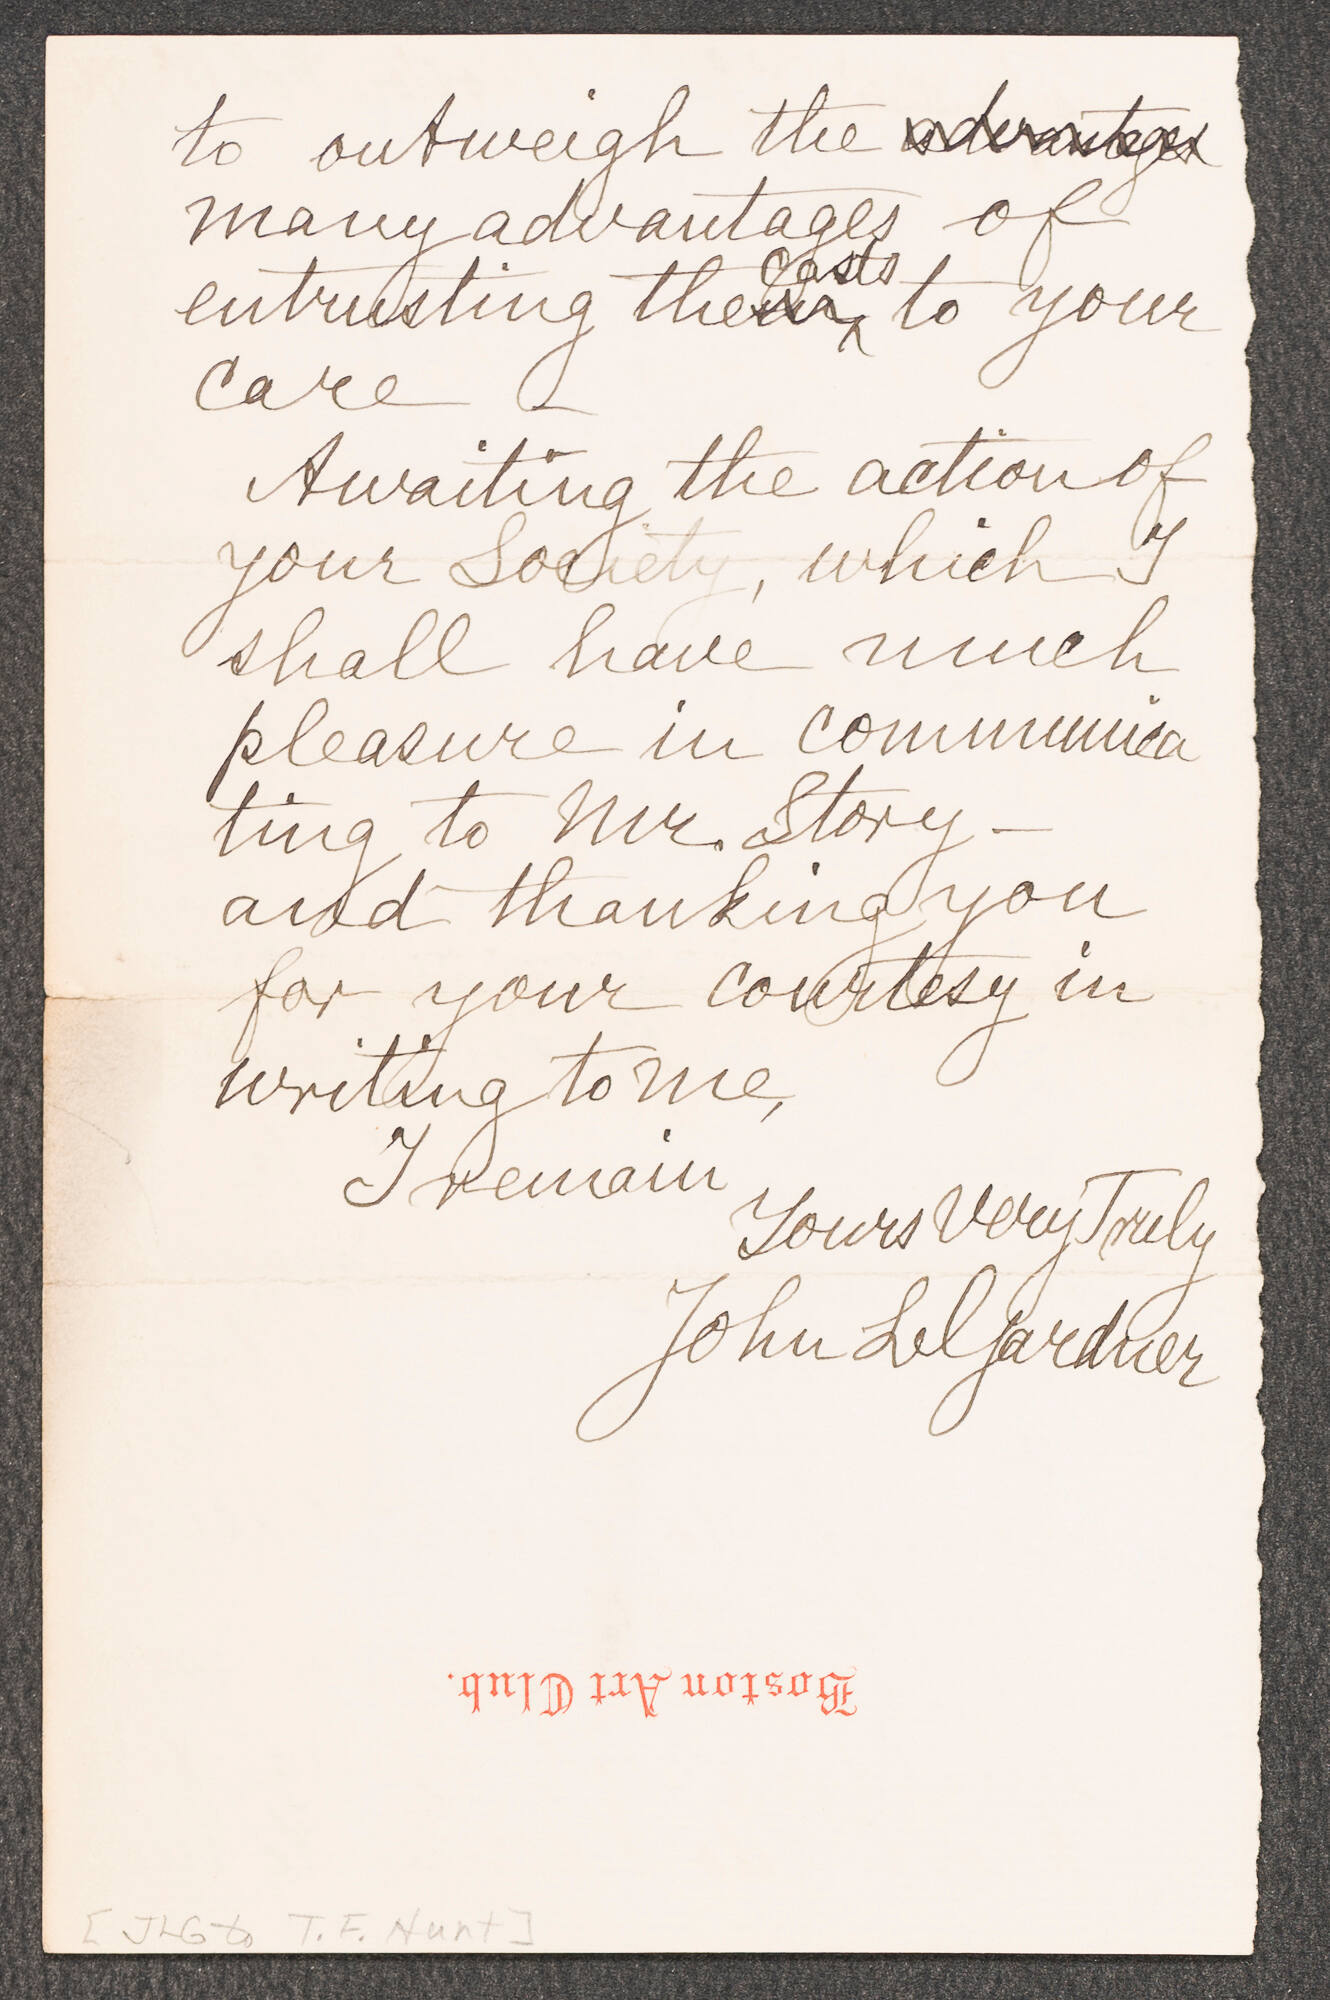 to outweigh the advantages
many advantages of
entrusting them casts to your
care –
Awaiting the action of
your Society, which I
shall have much
pleasure in communica
ting to Mr. Story –
and thanking you
for your courtesy in
writing to me,
I remain
Yours Very Truly
John L Gardner
Boston Art Club.
[JLG to T. F. Hunt]